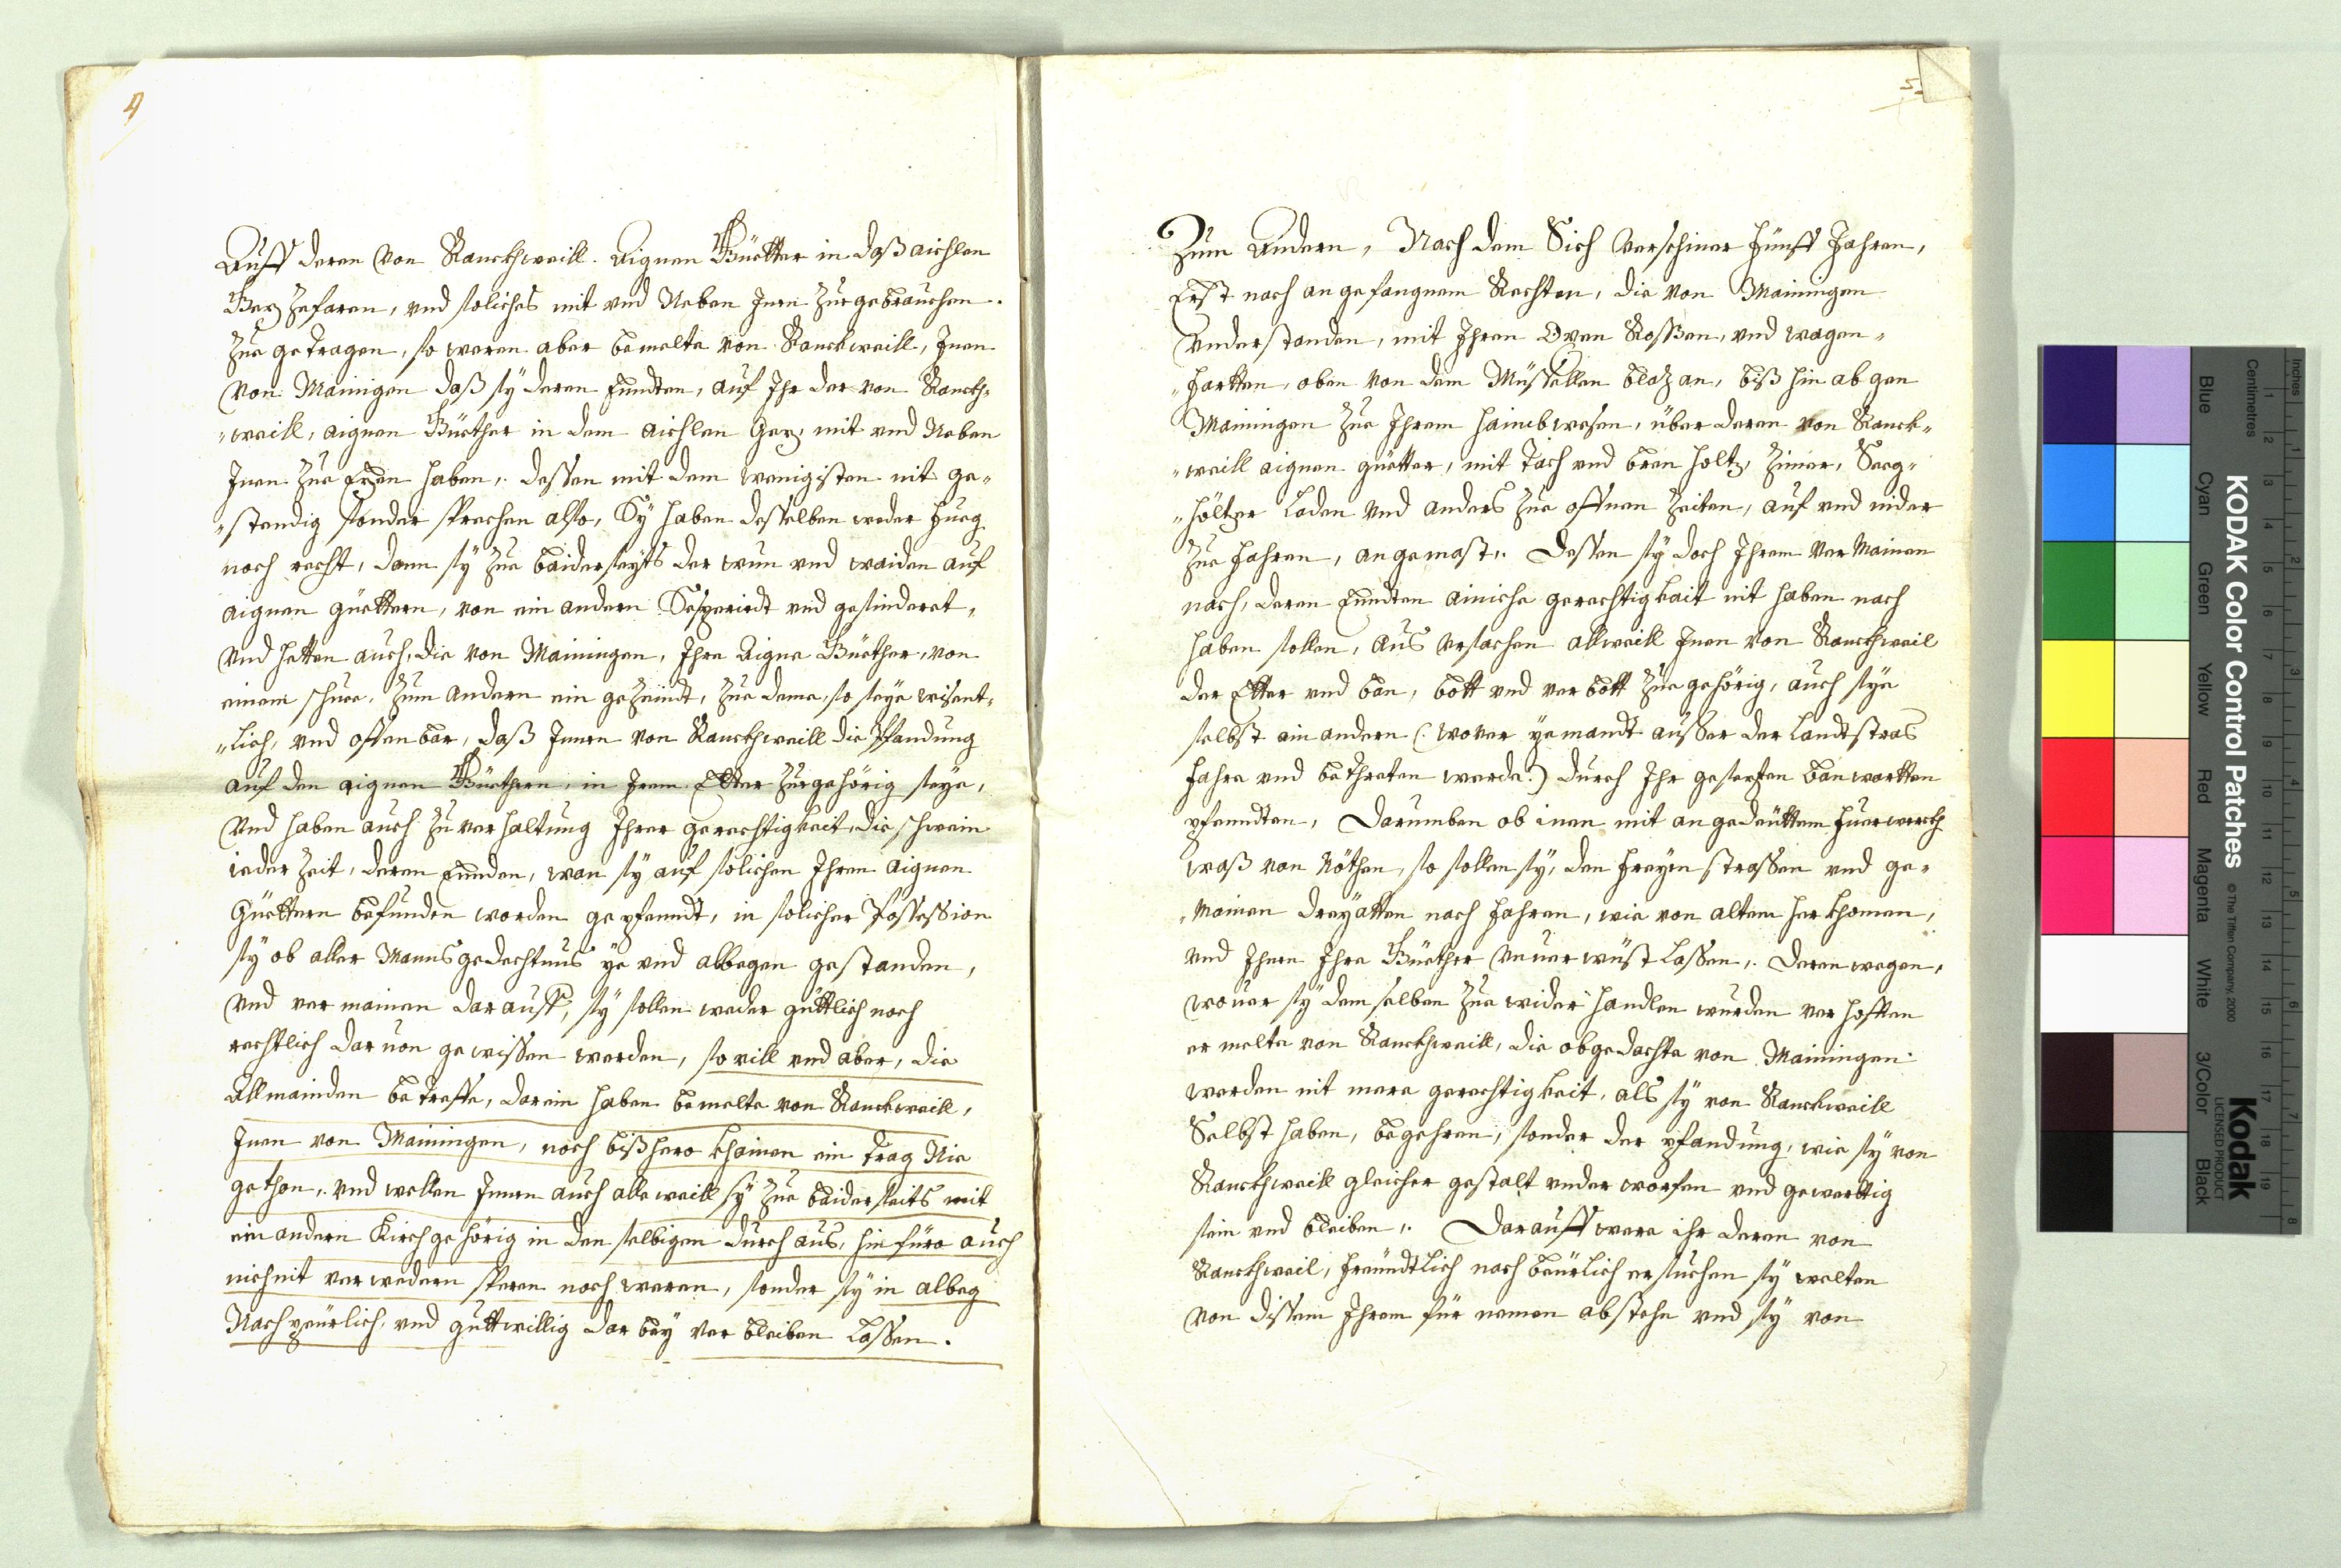 4
Auff deren von Ranckhweill. Aignen Güetter in daß aichlen
Gerz zefaren, vnd soliches mit vnd Neben Inen zuegebrauchen.
zue getragen, so weren aber bemelte von Ranckweill, Inen
von Mainigen daß sÿ deren Enndten, auf Ihr der von Ranckh-
weill, aignen Güether in dem aichlen Gerz, mit vnd Neben
Inen zue Ezen haben, dessen mit dem wenigisten nit ge-
stendig sonder sprechen also, Sÿ haben desselben weder fueg
noch recht, dann sÿ zue baiderseÿts der wun vnd waiden auf
aignen güettern, von ein andern Sesperiedt vnd gesünderet,
vnd hetten auch, die von Mainingen, Ihre Aigne Güether, von
einem schnee, zum andern ein gezeündt, zue deme, so seÿe wisent-
lich, vnd offenbar, daß Innen von Rauckhweill die Pfandung
auf den aignen Güethern, in Irem Etter zuegehörig seÿe,
vnd haben auch zu verhaltung Ihrer gerechtigkeit, die schwein
ieder Zeit, deren Ennden, wan sÿ auf solichen Ihren aignen
Güettern befunden worden gepfenndt, in solicher Possession
sÿ ob aller Mannsgedechtnus ye vnd allwegen gestanden,
vnd vermainen darauff, sÿ sollen weder güettlich noch
rechtlich daruon gewissen werden, so vill vnd aber, die
Allmainden betreffe, darein haben bemelte von Ranckweill,
Inen von Mainingen, noch bißhero khainen ein trag Nie
gethon, vnd wellen Innen auch alleweill sÿ zue baiderseits mit
ein andern Kirchgehörig in denselbigen durch aus, hinfüro auch
nichnit verwedern speren noch weren, sonder sÿ in albeg
Nachpeürlich, vnd guettwillig dar beÿ ver bleiben Lassen.
5.
Zum Andern, Nach dem Sich verschiner fünff Jahren,
Erst nach angefangnem Rechten, die von Mainingen
vnderstanden, mit Ihren Oxen Roßen, vnd wagen-
fartten, oben von dem Müsellen bloz an, biß hin ab gen
Mainingen zue Ihrem haimbwesen, über deren von Ranck-
weill aignen güetter, mit Tach vnd bren holtz, Zimer, Saeg-
höltzer Laden vnd anders zue offnen Zeiten, auf vnd nider
zue fahren, angemast, Dessen sÿ doch Ihrem vermainen
nach, deren Enndten ainiche gerechtigkait nit haben noch
haben sollen, aus vrsachen allweill Inen von Ranckhweil
der Etter vnd ban, bott vnd verbott zuegehörig, auch sÿe
selbst ein andern (: wover yemandt ausser der Landtstras
fahre vnd bethreten werde:) durch Ihr gesetzten banwartten
pfenndten, Darumben ob inen mit angedeüttem fuerwerch
waß von Nöthen, so sollen sÿ, den freÿen strassen vnd ge-
mainen dreÿatten nach fahren, wie von altem herkhomen,
vnd Ihnen Ihre Güether vnuerwüst lassen, derenwegen,
wouer sÿ demselben zue wider handlen wurden verhofften
ermelte von Ranckhweill, die obgedachte von Mainingen
werden nit mere gerechtigkeit, als sÿ von Ranckweill
Selbst haben, begehren, sonder der pfandung, wie sÿ von
Ranckhweill gleicher gestalt vnderworfen vnd gewerttig
sein vnd bleiben, Darauff were ihr deren von
Ranckhweil, freündtlich nachbeürlich ersuchen sÿ wolten
von dissem Ihrem fürnemen abstehn vnd sÿ von
Inches
Centimetres
1 2 3 4 5 6 7 8
1 2 3 4 5 6 7 8 9 10 11 12 13 14 15 16 17 18 19
Blue
Cyan
Green
Yellow
Red
Magenta
White
3/Color
Black
KODAK Color Control Patches
© The Tiffen Company, 2000
Kodak
LICENSED PRODUCT